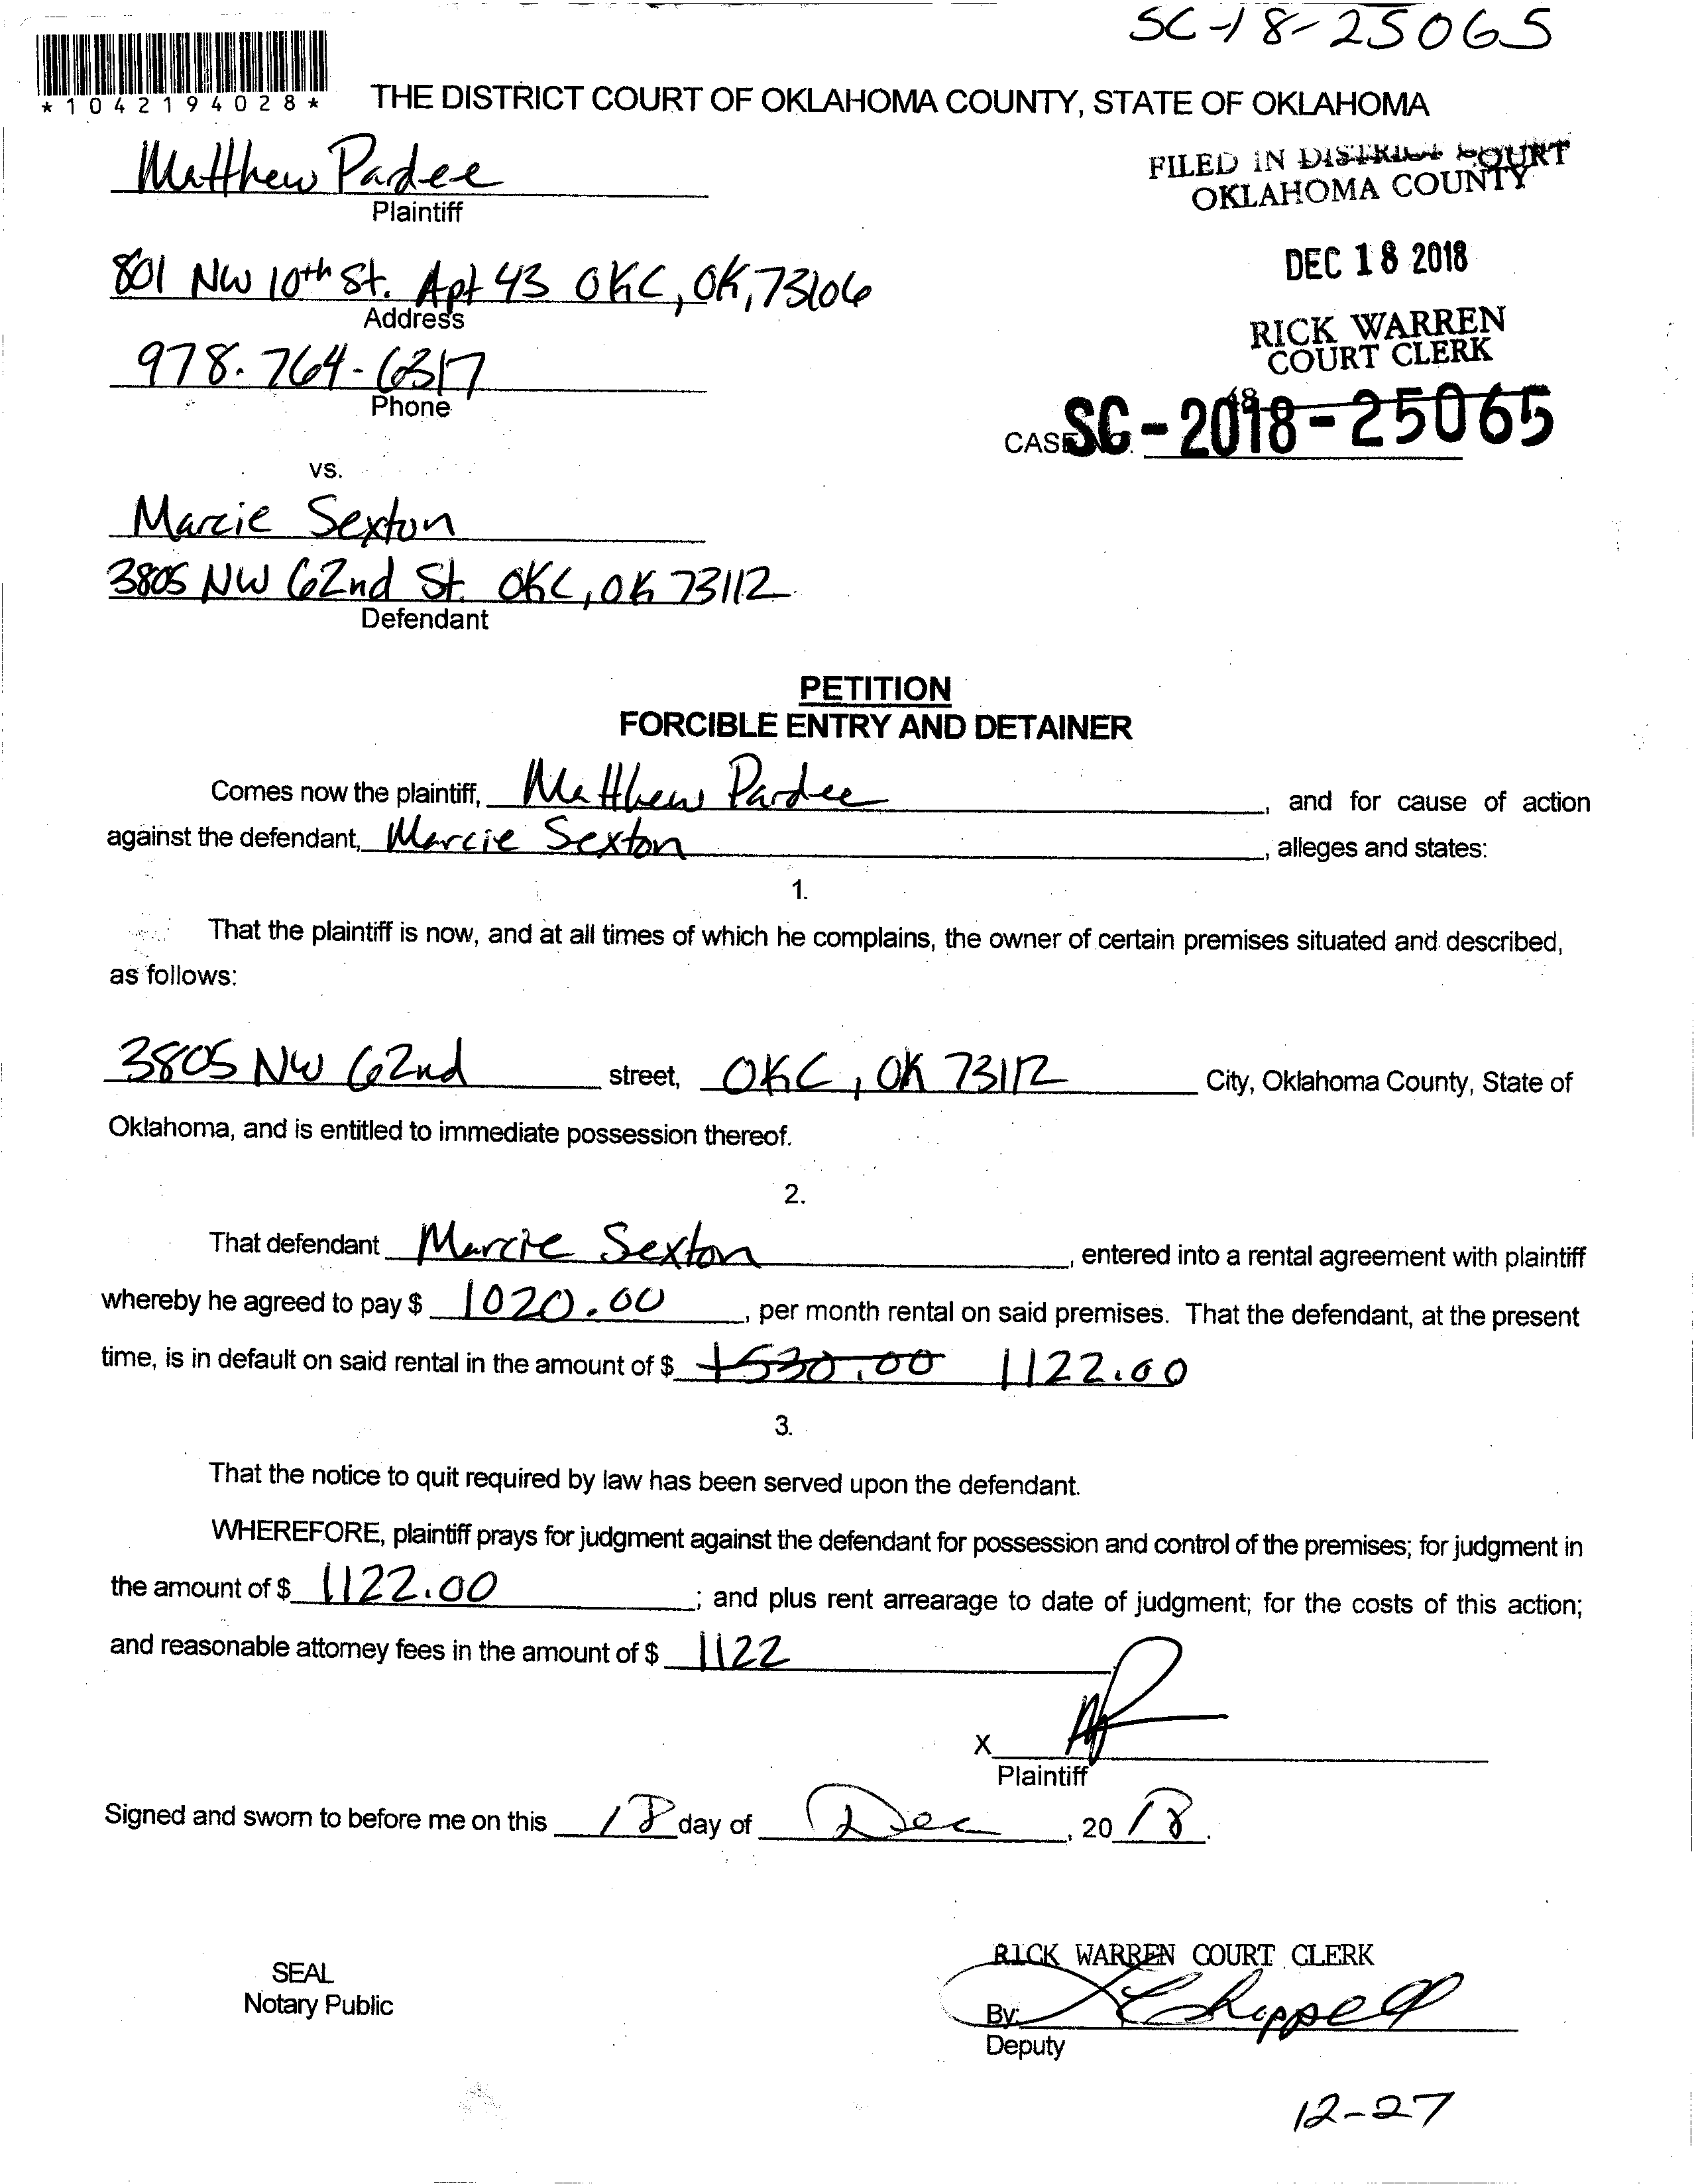 SC-18-25065
*1042194028*
THE DISTRICT COURT OF OKLAHOMA COUNTY, STATE OF OKLAHOMA
Matthew Pardee
Plaintiff
FILED IN DISTRICT COURT
OKLAHOMA COUNTY
801 NW 10th St. Apt 43 OKC, OK, 73106
Address
DEC 18 2018
RICK WARREN
COURT CLERK
978.764-6317
Phone
48
CASE SC-2018-25065
vs.
Marcie Sexton
3805 NW 62nd St. OKC, OK 73112
Defendant
PETITION
FORCIBLE ENTRY AND DETAINER
Comes now the plaintiff, Matthew Pardee, and for cause of action
against the defendant, Marcie Sexton, alleges and states:
1.
That the plaintiff is now, and at all times of which he complains, the owner of certain premises situated and described,
as follows:
3805 NW 62nd street, OKC, OK 73112 City, Oklahoma County, State of
Oklahoma, and is entitled to immediate possession thereof.
2.
That defendant Marcie Sexton, entered into a rental agreement with plaintiff
whereby he agreed to pay $ 1020.00, per month rental on said premises. That the defendant, at the present
time, is in default on said rental in the amount of $ 1530.00 1122.00
3.
That the notice to quit required by law has been served upon the defendant.
WHEREFORE, plaintiff prays for judgment against the defendant for possession and control of the premises; for judgment in
the amount of $ 1122.00; and plus rent arrearage to date of judgment; for the costs of this action;
and reasonable attorney fees in the amount of $ 1122
X
Plaintiff
Signed and sworn to before me on this 18 day of Dec, 2018.
SEAL
Notary Public
RICK WARREN COURT CLERK
By: Chappell
Deputy
12-27